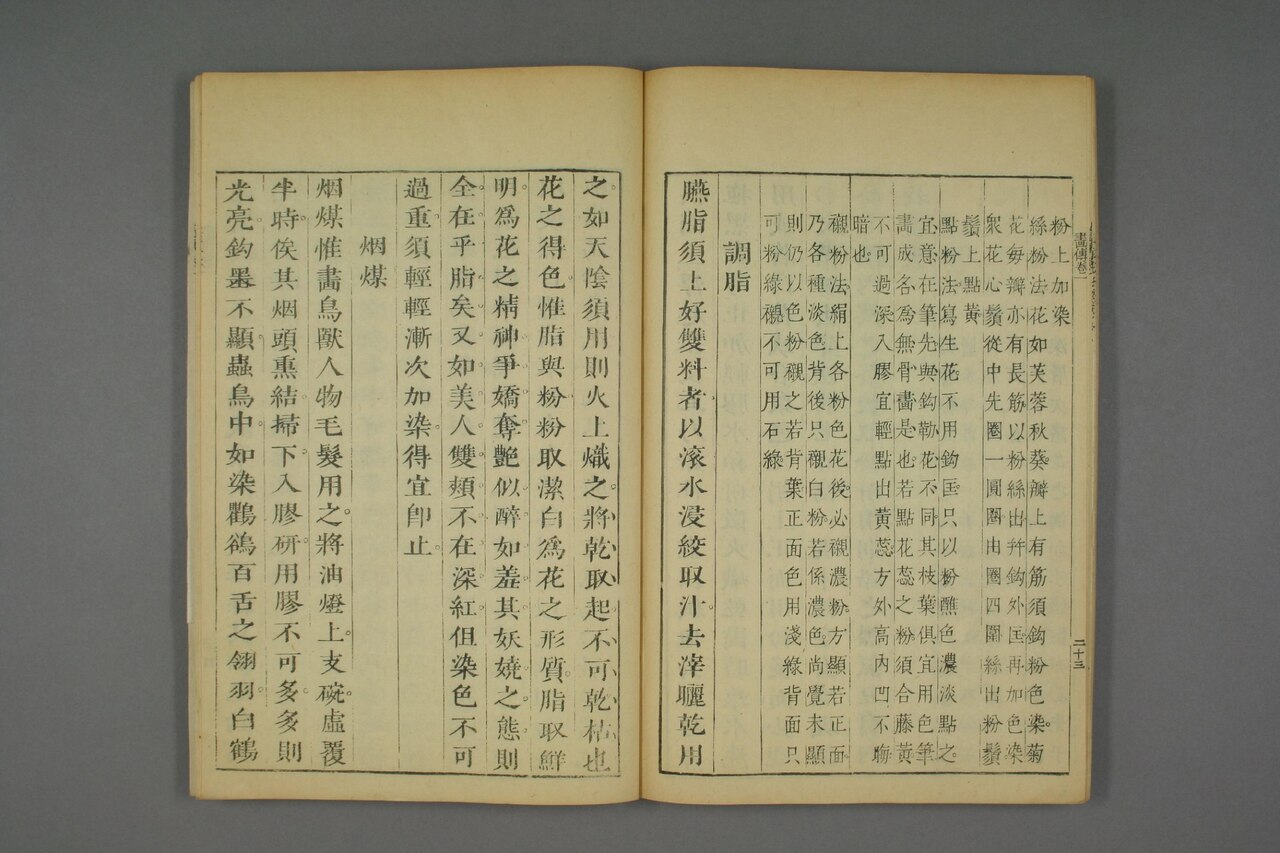 畫傳卷一
二十三
粉上加染
絲粉法花如芙蓉秋葵瓣上有筋須鈎粉色染菊
花每瓣亦有長筋以粉絲出幷鈎外匡再加色染
衆花心鬚從中先圈一圓圈由圈四圍絲出粉鬚
鬚上點黃
點粉法寫生花不用鈎匡只以粉醮色濃淡點之
宜意在筆先與鈎勒花不同其枝葉俱宜用色筆
畵成名爲無骨畵是也若點花蕊之粉須合藤黃
不可過深入膠宜輕點出黃蕊方外高內凹不晦
暗也
襯粉法絹上各粉色花後必襯濃粉方顯若正面
乃各種淡色背後只襯白粉若係濃色尚覺未顯
則仍以色粉襯之若背葉正面色用淺綠背面只
可粉綠襯不可用石綠
調脂
臙脂須上好雙料者以滚水浸絞取汁去滓曬乾用
之如天陰須用則火上熾之將乾取起不可乾枯也
花之得色惟脂與粉粉取潔白爲花之形質脂取鮮
明爲花之精神爭嬌奪艷似醉如羞其妖嬈之態則
全在乎脂矣又如美人雙頰不在深紅但染色不可
過重須輕輕漸次加染得宜卽止
烟煤
烟煤惟畵鳥獸人物毛髮用之將油燈上支碗虛覆
半時俟其烟頭熏結掃下入膠研用膠不可多多則
光亮鈎墨不顯蟲鳥中如染鸜鵒百舌之翎羽白鶴